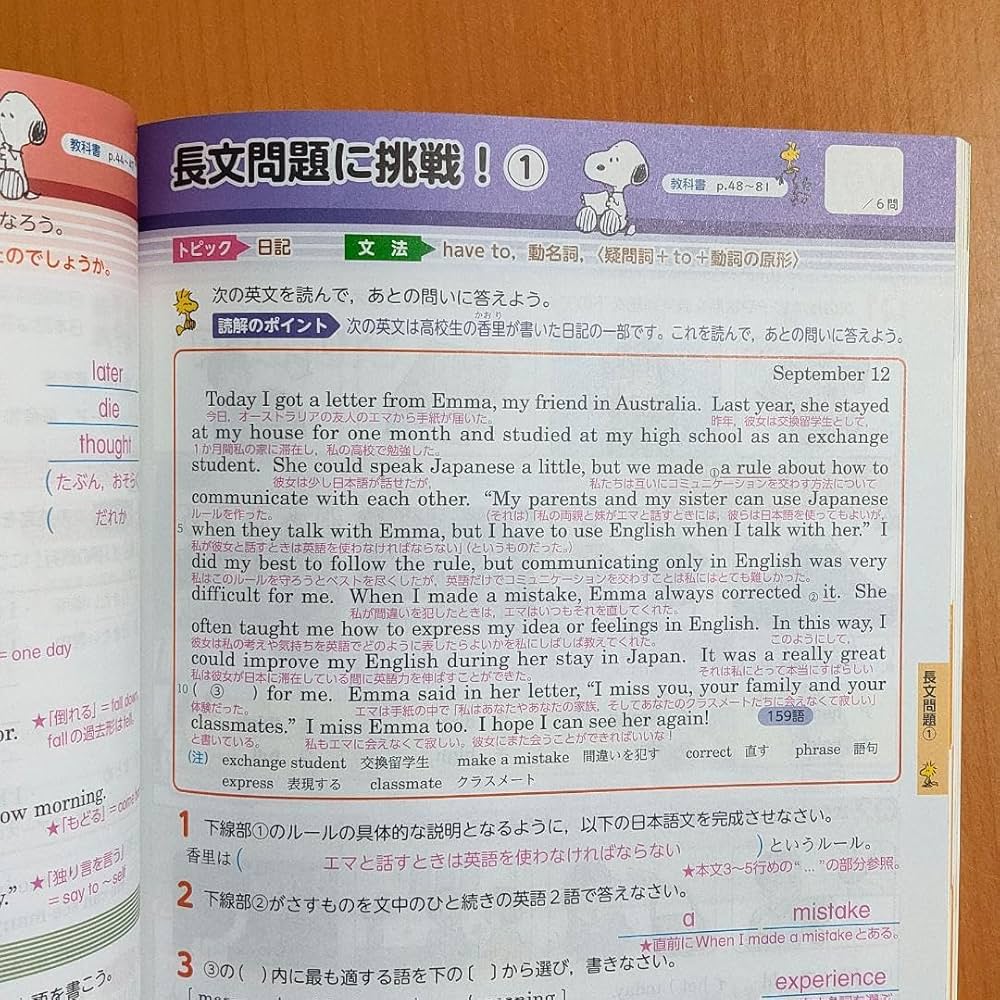 教科書 p.44~
なろう。
たのでしょうか。
later
die
thought
(たぶん,おそら
( だれか
= one day
★「倒れる」= fall down
fallの過去形はfell.
or.
ow morning.
★「もどる」= come
★「独り言を言う」
= say to ~self
y.”
語を書こう。
長文問題に挑戦!①
教科書 p.48~81
/6問
トピック 日記 文法 have to, 動名詞,〈疑問詞+to+動詞の原形〉
次の英文を読んで,あとの問いに答えよう。
かおり
読解のポイント 次の英文は高校生の香里が書いた日記の一部です。これを読んで,あとの問いに答えよう。
September 12
Today I got a letter from Emma, my friend in Australia. Last year, she stayed
今日,オーストラリアの友人のエマから手紙が届いた。 昨年,彼女は交換留学生として,
at my house for one month and studied at my high school as an exchange
1か月間私の家に滞在し,私の高校で勉強した。
student. She could speak Japanese a little, but we made ①a rule about how to
彼女は少し日本語が話せたが, 私たちは互いにコミュニケーションを交わす方法について
communicate with each other. “My parents and my sister can use Japanese
ルールを作った。 (それは)「私の両親と妹がエマと話すときには,彼らは日本語を使ってもよいが,
5 when they talk with Emma, but I have to use English when I talk with her.” I
私が彼女と話すときは英語を使わなければならない」(というものだった。)
did my best to follow the rule, but communicating only in English was very
私はこのルールを守ろうとベストを尽くしたが,英語だけでコミュニケーションを交わすことは私にはとても難しかった。
difficult for me. When I made a mistake, Emma always corrected ②it. She
私が間違いを犯したときは,エマはいつもそれを直してくれた。
often taught me how to express my idea or feelings in English. In this way, I
彼女は私の考えや気持ちを英語でどのように表したらよいかを私にしばしば教えてくれた。 このようにして,
could improve my English during her stay in Japan. It was a really great
私は彼女が日本に滞在している間に英語力を伸ばすことができた。 それは私にとって本当にすばらしい
10 ( ③ ) for me. Emma said in her letter, “I miss you, your family and your
体験だった。 エマは手紙の中で「私はあなたやあなたの家族,そしてあなたのクラスメートたちに会えなくて寂しい」
classmates.” I miss Emma too. I hope I can see her again! 159語
と書いている。 私もエマに会えなくて寂しい。彼女にまた会うことができればいいな!
(注) exchange student 交換留学生 make a mistake 間違いを犯す correct 直す phrase 語句
express 表現する classmate クラスメート
1 下線部①のルールの具体的な説明となるように,以下の日本語文を完成させなさい。
香里は( エマと話すときは英語を使わなければならない )というルール。
★本文3~5行めの“ … ”の部分参照。
2 下線部②がさすものを文中のひと続きの英語2語で答えなさい。
a mistake
★直前にWhen I made a mistakeとある。
3 ③の( )内に最も適する語を下の[ ]から選び,書きなさい。
experience
長文問題①